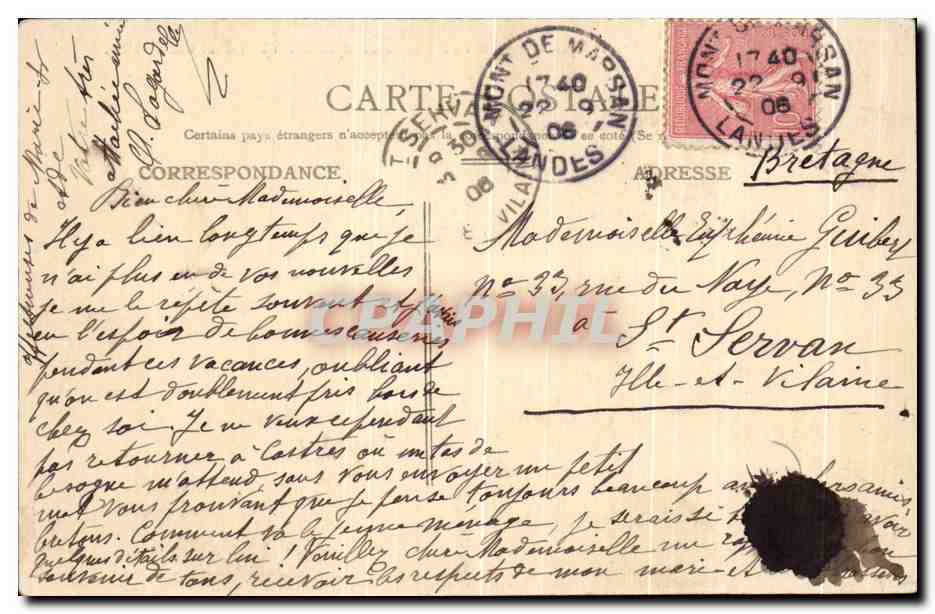 CARTE POSTALE
Certains pays étrangers n'acceptent pas la
CORRESPONDANCE
ADRESSE
MONT DE MARSAN
17 40
22 9
06
LANDES
MONT DE MARSAN
17 40
22 9
06
LANDES
ST SERVAN
30
06
VILAINE
Bretagne
Bien chère Mademoiselle,
Il y a bien longtemps que je
n'ai plus eu de vos nouvelles
je me le répète souvent et j'étais
en l'espoir de bonnes causeries
pendant ces vacances, oubliant
qu'on est doublement pris hors de
chez soi. Je ne veux cependant
pas retourner à Castres où un tas de
besogne m'attend, sans vous envoyer un petit
mot vous prouvant que je pense toujours beaucoup aux
bretons. Comment va le jeune ménage, je serais si avoir
quelques détails sur lui ! Veuillez chère Mademoiselle
souvenir de tous, recevoir les respects de mon mari et
affectueuses de
votre très
attachée amie
Lagardelle
Mademoiselle Euphémie Guibert
No 33, rue du Naye, No 33
à
St Servan
Ille-et-Vilaine
CPAPHIL